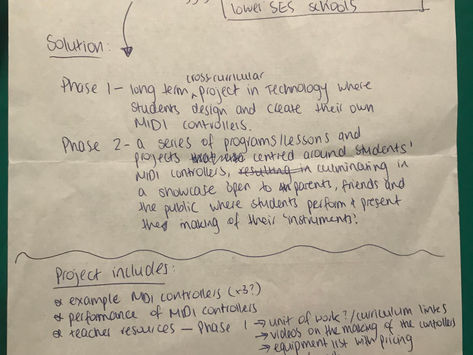 lower SES schools
Solution:
cross-curricular
Phase 1 - long term ^ project in Technology where
students design and create their own
MIDI controllers.
Phase 2 - a series of programs/lessons and
projects centred around students'
MIDI controllers, resulting in culminating in
a showcase open to parents, friends and
the public where students perform + present
the making of their 'instruments'.
Project includes:
example MIDI controllers (x3?)
performance of MIDI controllers
teacher resources - Phase 1 → unit of work?/curriculum links
→ videos on the making of the controllers
→ equipment list with pricing